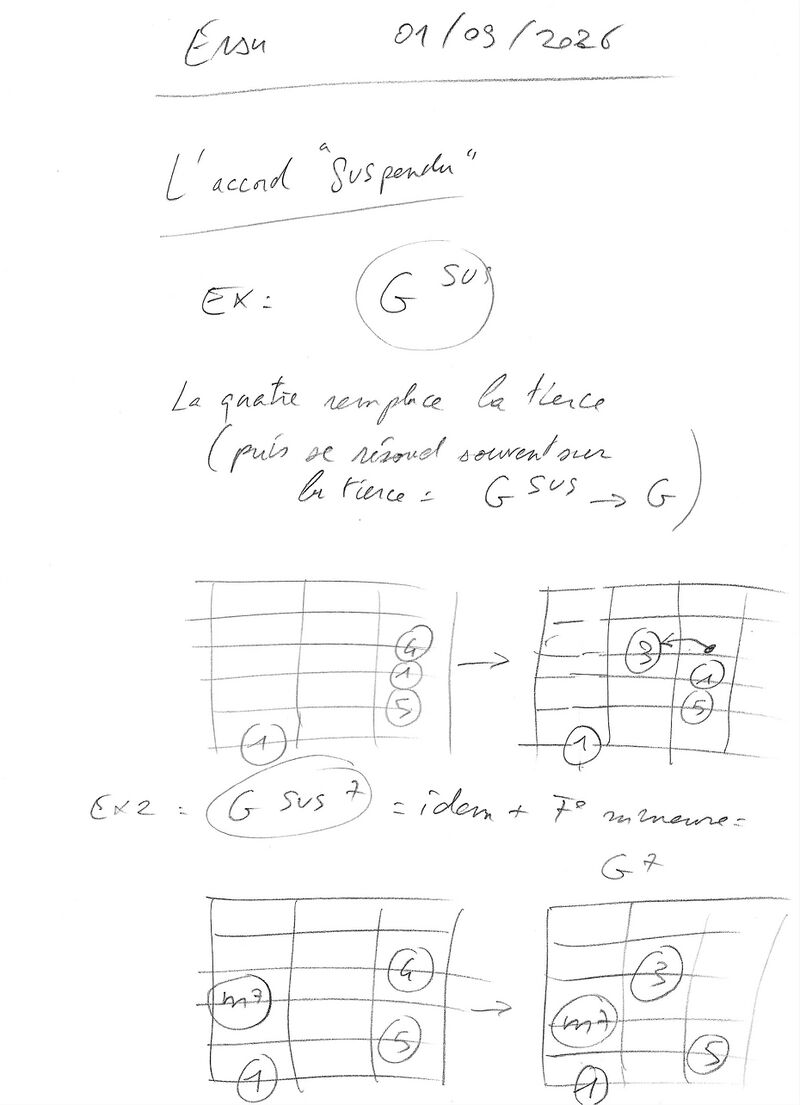 Ersu 01/09/2026
L'accord "Suspendu"
Ex : G sus
La quarte remplace la tierce
(puis se résoud souvent sur
la tierce = G sus → G)
4
1
5
1
→
3
1
5
1
Ex 2 = G sus 7 = idem + 7° mineure =
G 7
4
m7
5
1
→
3
m7
5
1